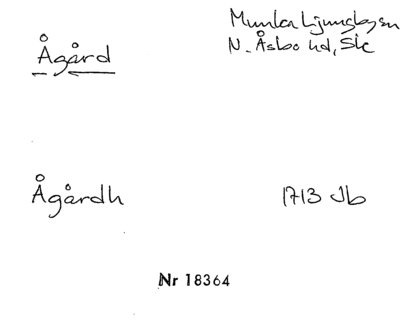 Ågård
Munka Ljungbyn
N. Åsbo hd, Sk
Ågårdh
1713 Jb
Nr 18364